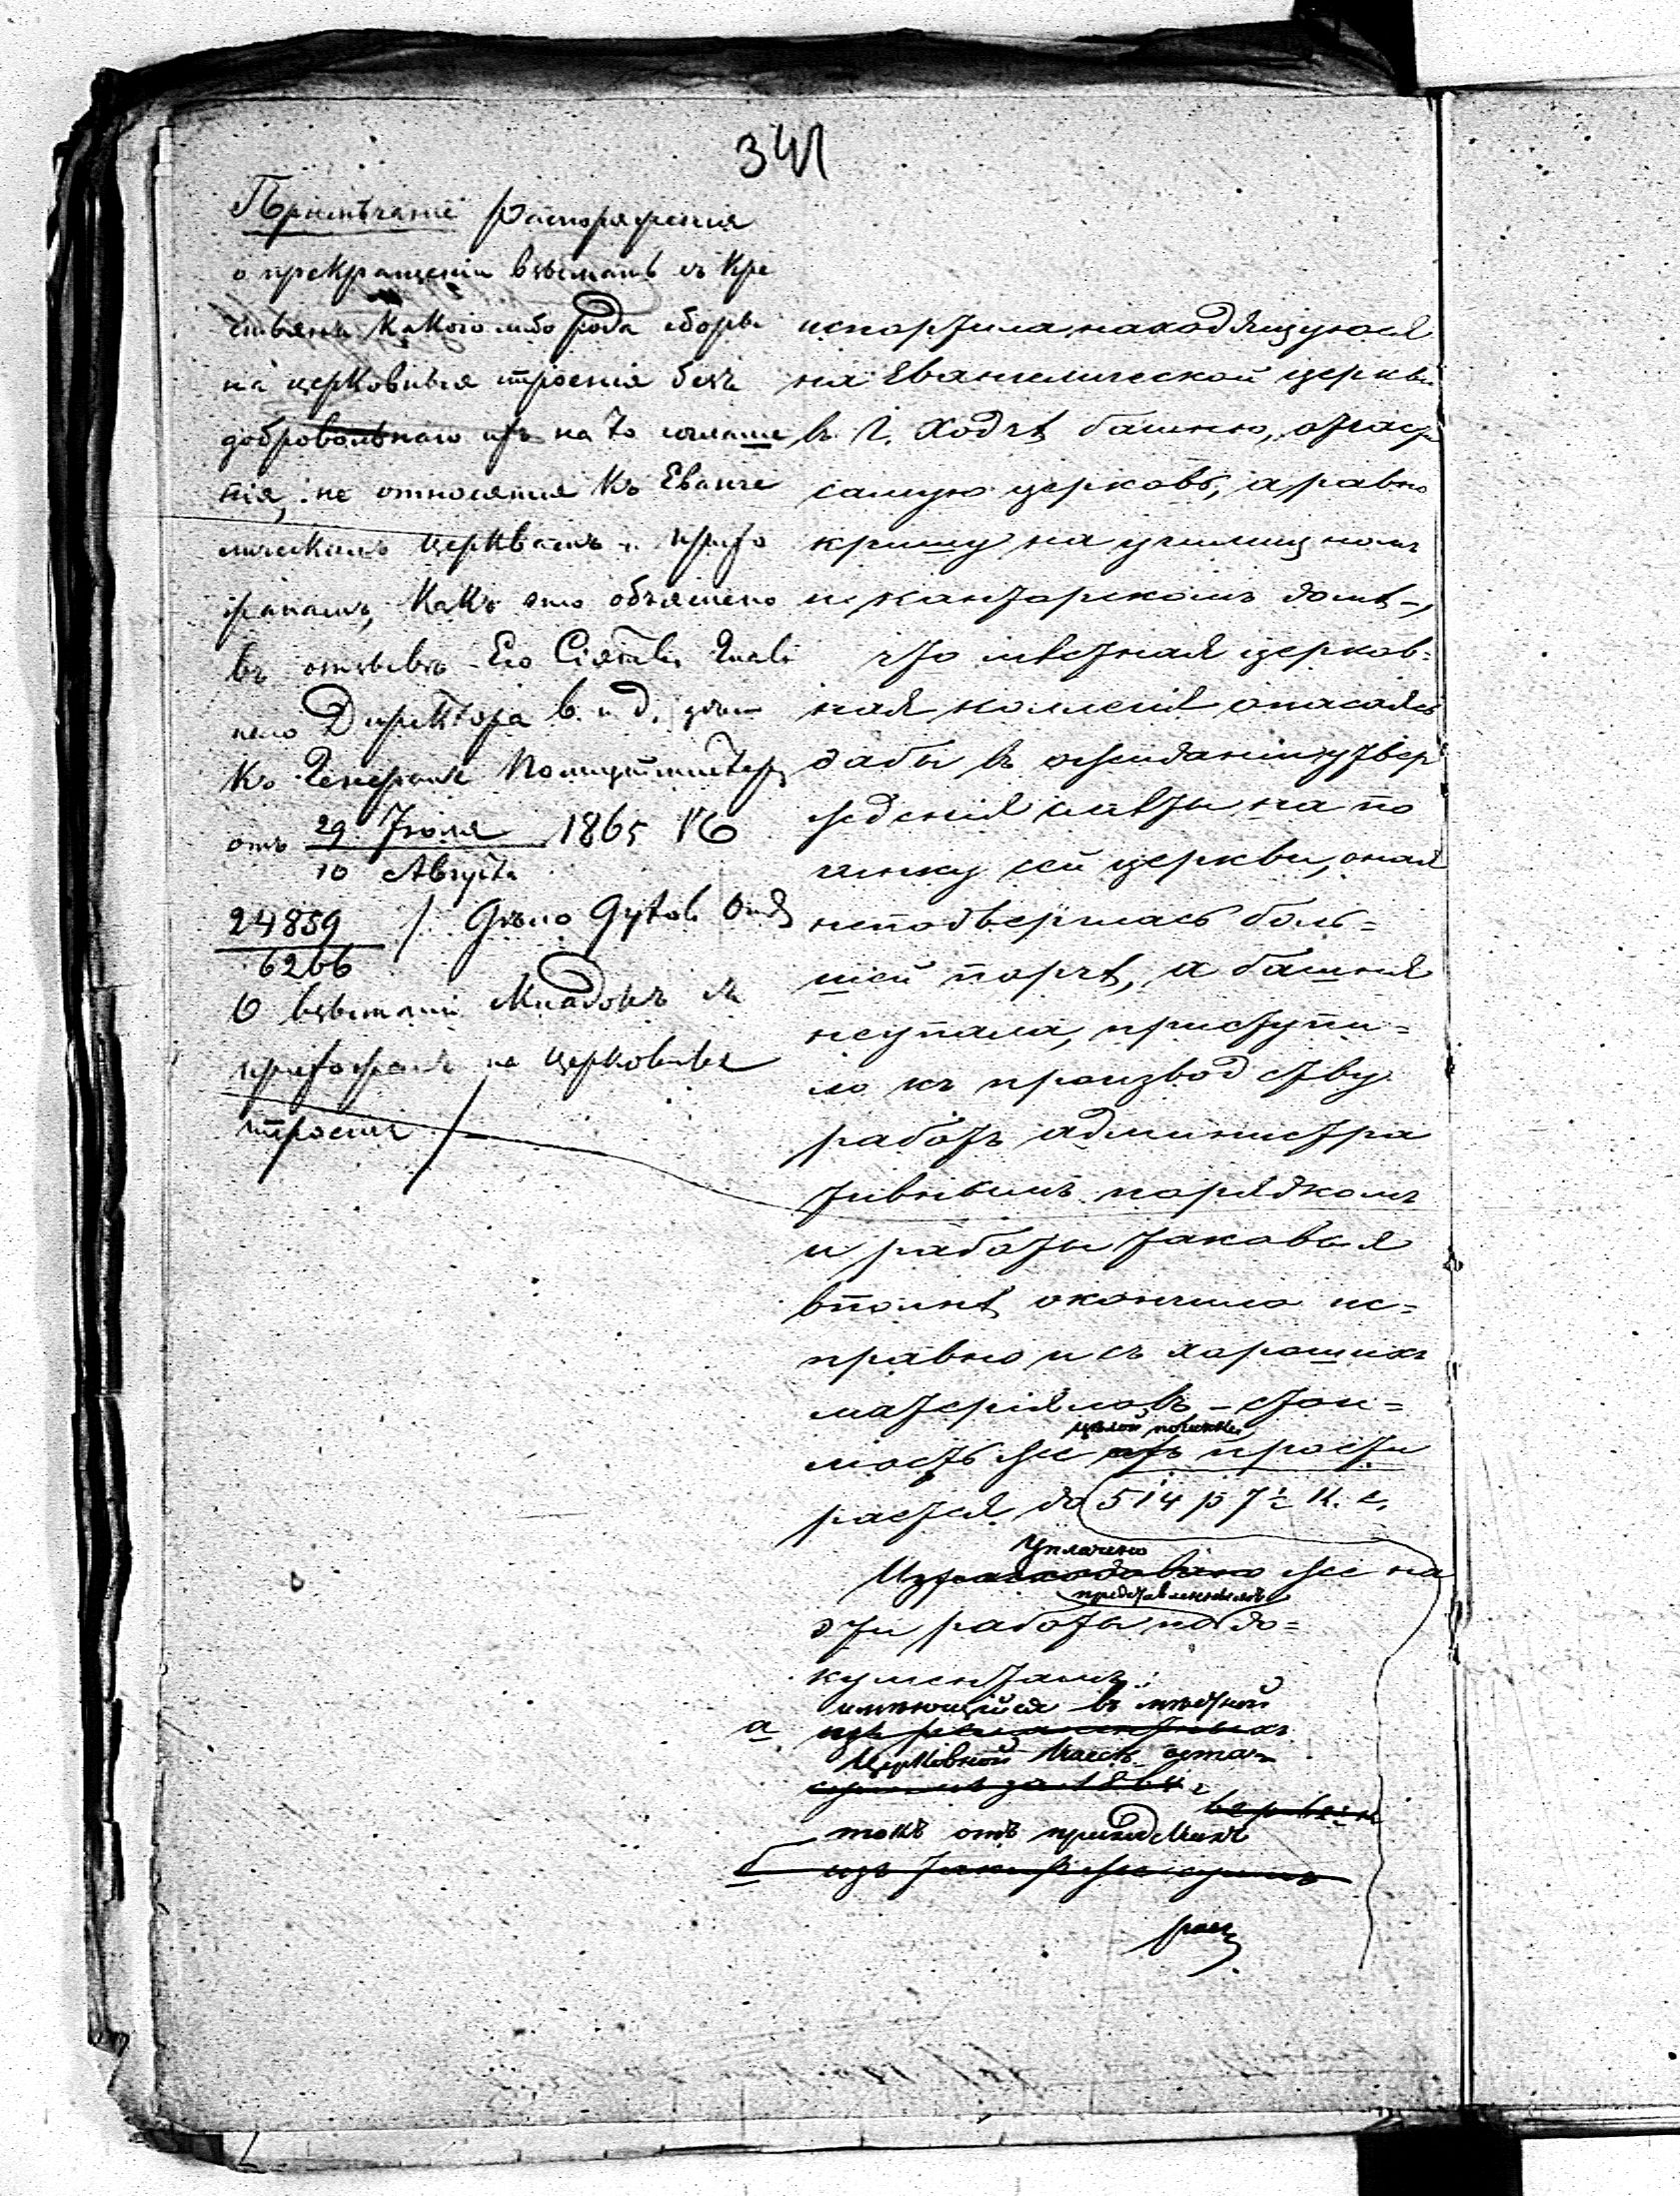 341
Примѣчаніе Распоряженія
о прекращеніи взысканія съ кре
стьянъ какого либо рода сборы
на церковныя строенія безъ
добровольнаго ихъ на то соглаше
нія, не относятся къ Еванге
лическимъ церквамъ и прихо
жанамъ, какъ это объяснено
въ отзывѣ Его Сіятельства
Директора В. и Д. дѣлъ
къ Генералъ Полициймейстеру
отъ 29 Іюля / 10 Августа 1865 №
24859 / 6266 / Дѣло
О взысканіи складокъ съ
прихожанъ на церковныя
строенія /
испортила находящуюся
на Евангелической церкви
въ г. Ходчѣ башню, отчасти
самую церковь, а равно
крышу на училищномъ
и канторскомъ домѣ,
что мѣстная церков=
ная коллегія опасаясь
дабы въ ожиданіи утвер
жденія смѣты на по
чинку сей церкви, оная
неподверглась боль=
шей порчѣ, а башня
неупала, приступи=
ло къ производству
работъ администра
тивнымъ порядкомъ
и работы таковыя
вполнѣ окончило ис=
правно и съ хорошихъ
матеріяловъ – стои=
цѣлой починки
мость же ихъ прости
рается до 514 р 7½ к. с.
Уплачено
Израсходовано же на
представленнымъ
эти работы по до=
кументамъ:
имѣющійся въ мѣстной
а изъ ремонтныхъ
Церковной Кассѣ оста
суммъ за 1864 г
токъ отъ прихожанъ
б изъ таковыхъ же суммъ